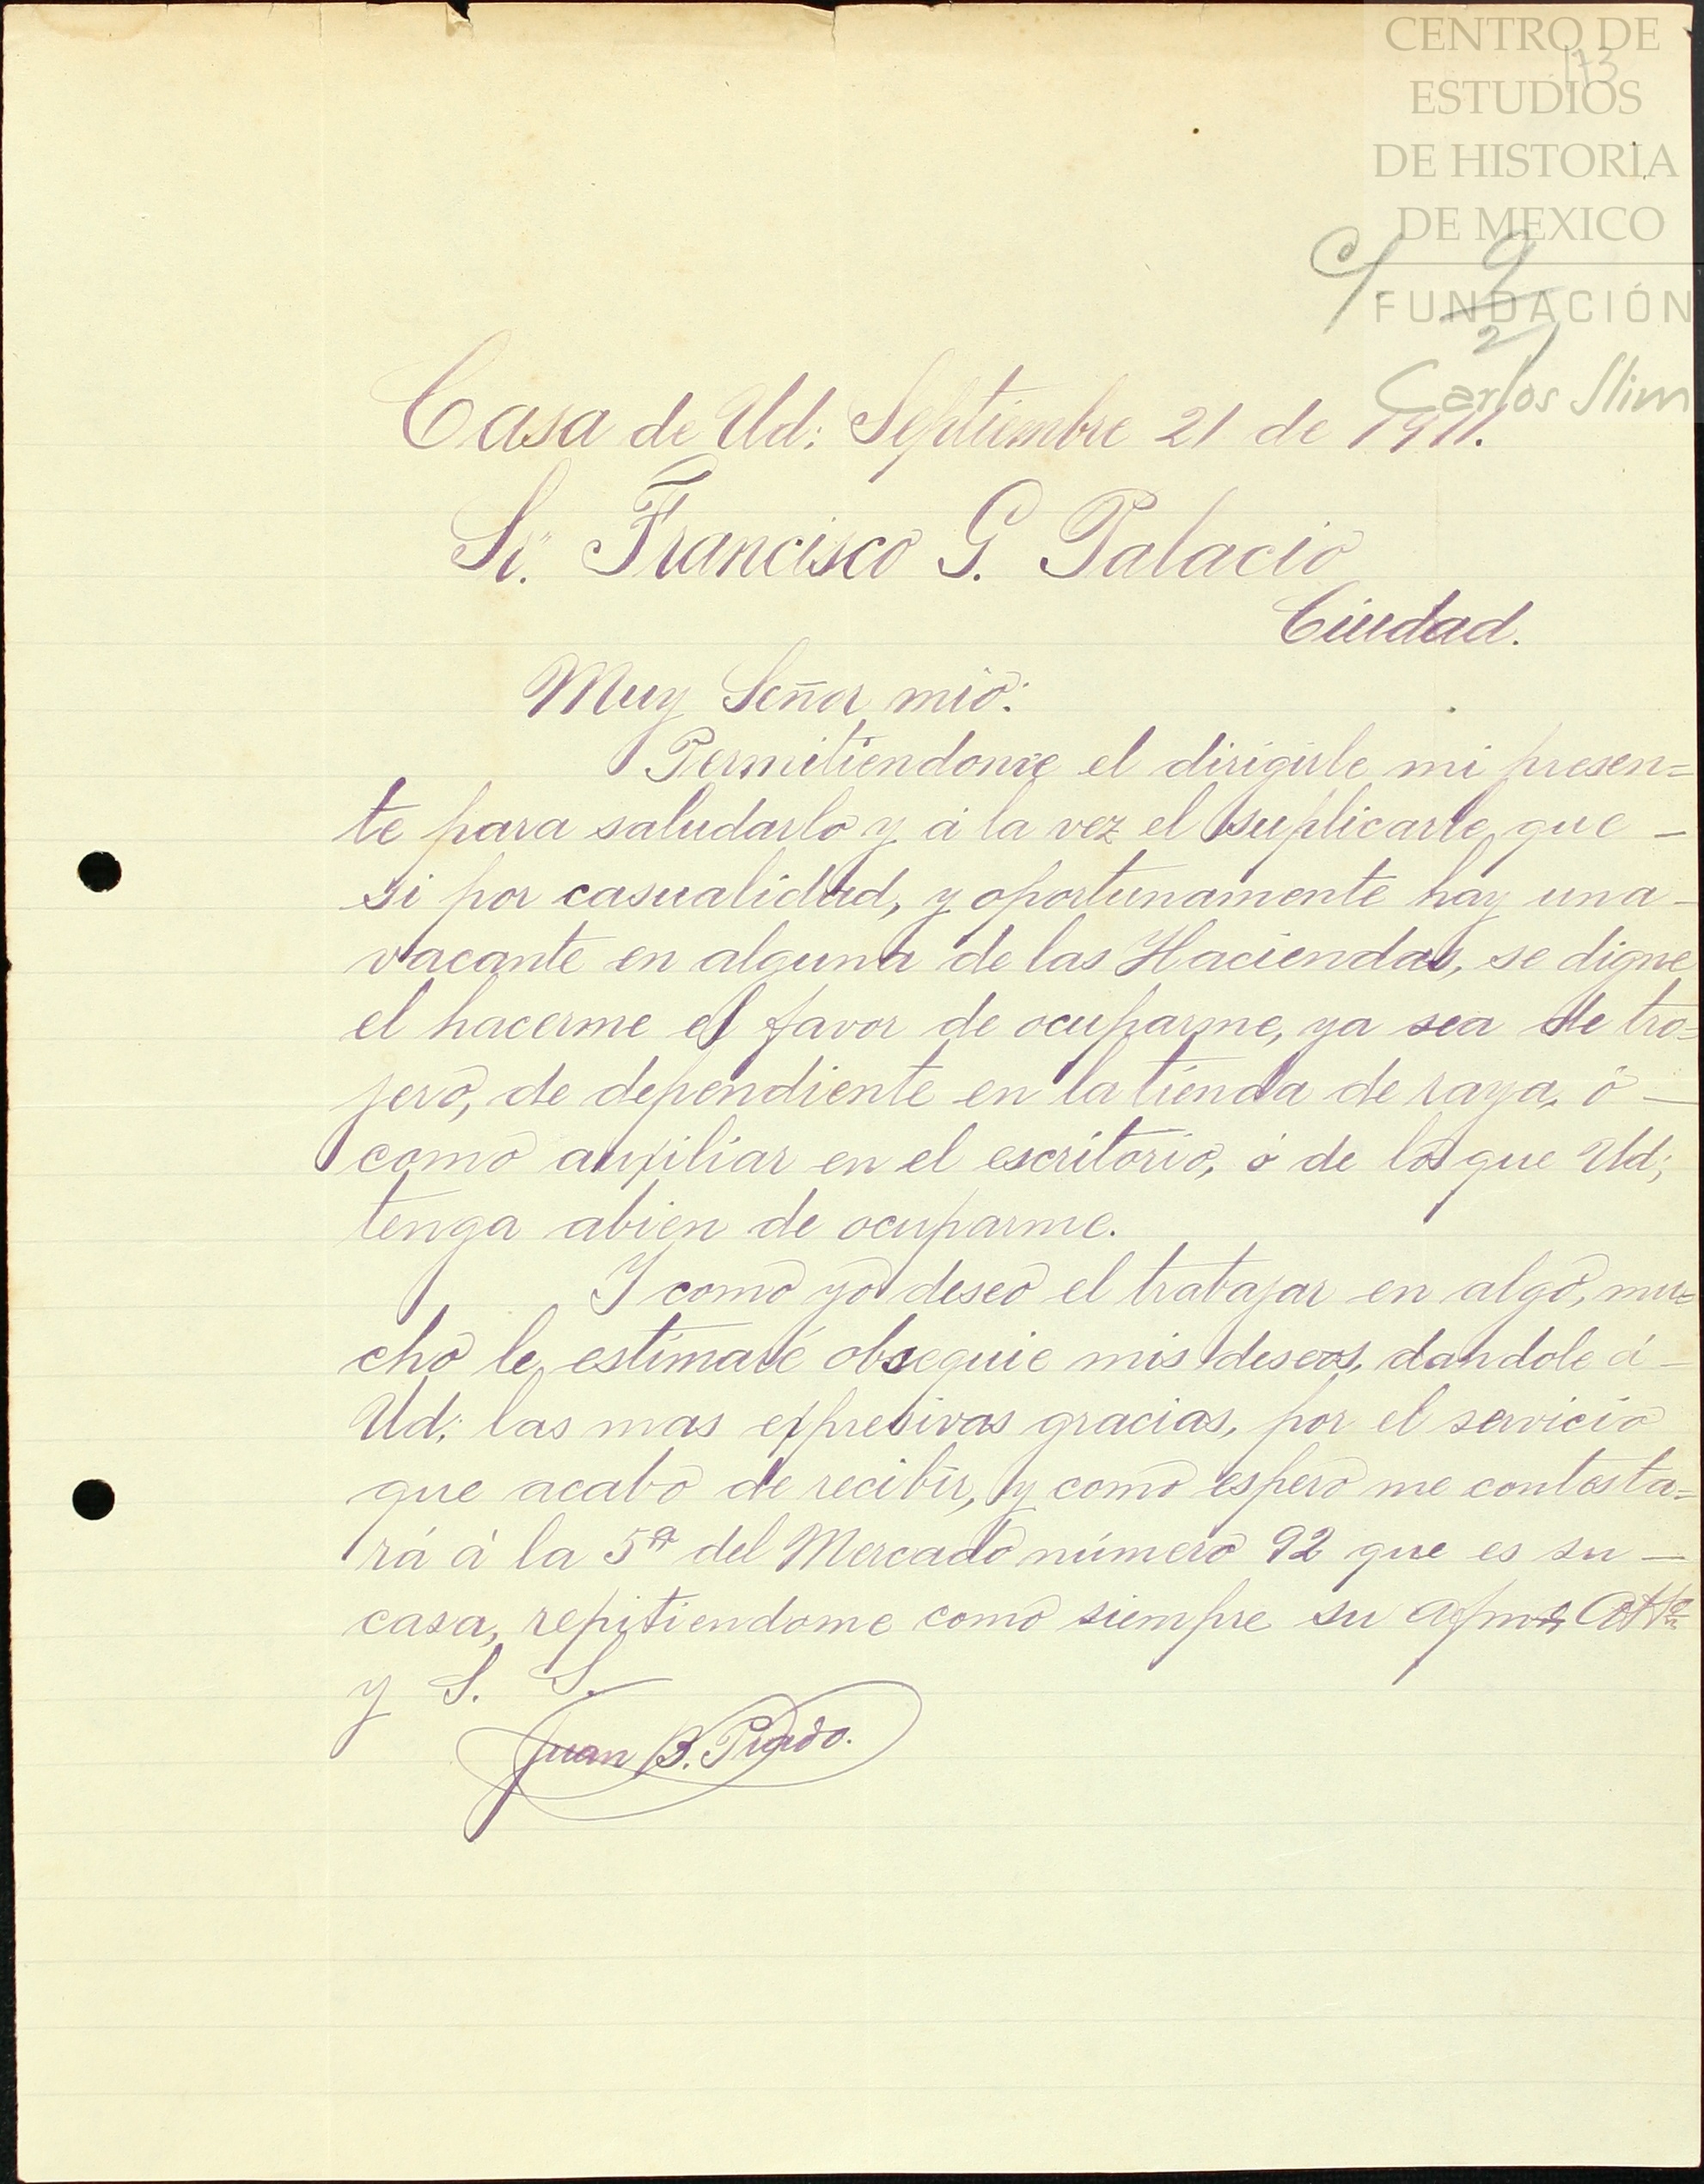 CENTRO DE
173
ESTUDIOS
DE HISTORIA
DE MEXICO
FUNDACIÓN
Carlos Slim
Casa de Ud: Septiembre 21 de 1911.
Sr. Francisco G. Palacio
Ciudad.
Muy Señor mio:
Permitiendome el dirigirle mi presen=
te para saludarlo y á la vez el suplicarle, que -
si por casualidad, y oportunamente hay una -
vacante en alguna de las Haciendas, se digne
el hacerme el favor de ocuparme, ya sea de tro=
jero, de dependiente en la tienda de raya, ó -
como auxiliar en el escritorio, ó de lo que Ud;
tenga abien de ocuparme.
Y como yo deseo el trabajar en algo, mu=
cho le estimaré obsequie mis deseos, dandole á -
Ud: las mas expresivas gracias, por el servicio
que acabo de recibir, y como espero me contesta=
rá á la 5ª del Mercado número 92 que es su -
casa, repitiendome como siempre su afmo Atto
y S. S.
Juan B. Prado.